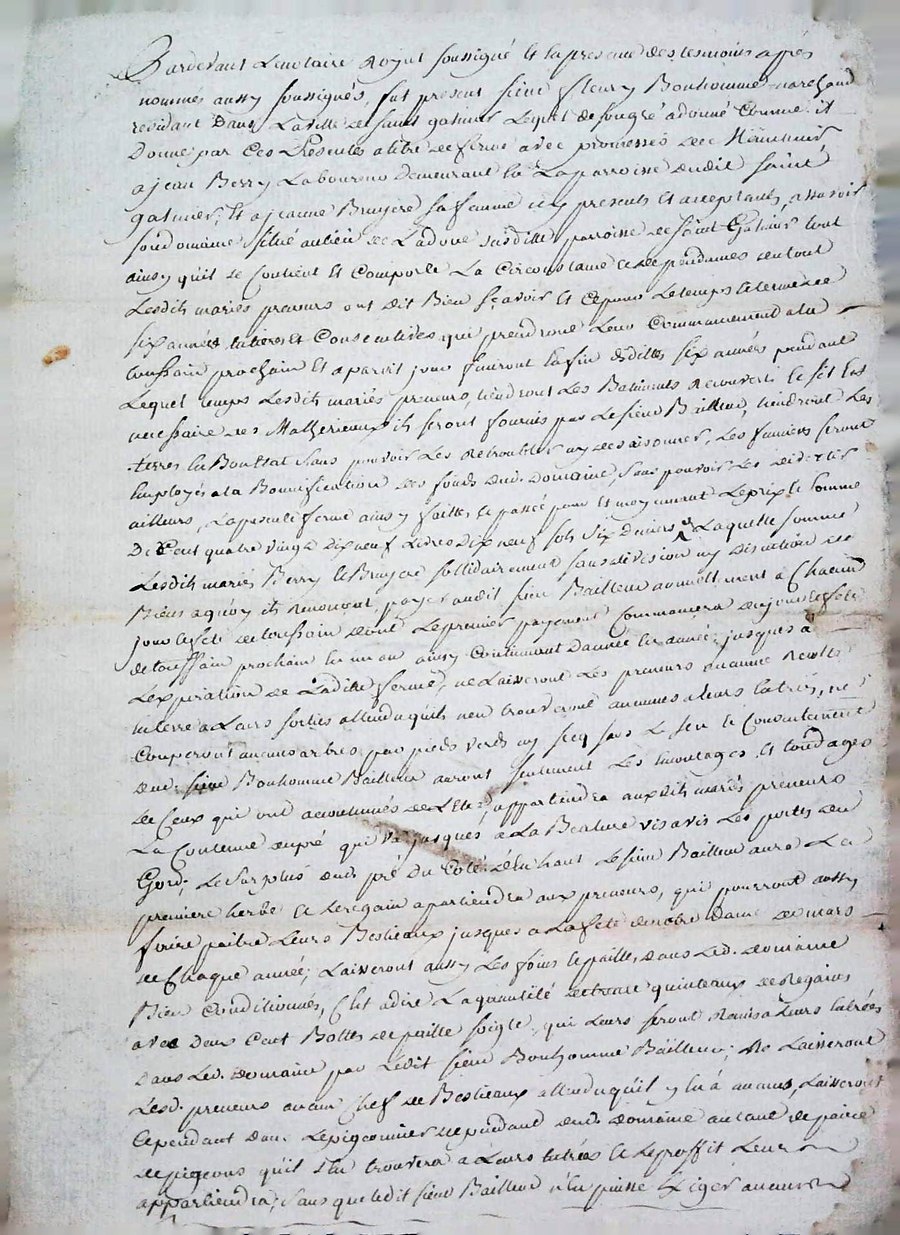 Pardevant Le notaire Royal soussigné et la presence des tesmoins apprés
nommés aussy soussignés, fut present sieur fleury Bonhomme marchand
residant Dans La ville de saint galmier Lequel de son gré a donné Comme il
Donne par Ces Presentes a titre de ferme avec promesses de Maintenir
a jean Berry Laboureur Demeurant La parroisse dudit saint
galmier, Et a jeanne Bruyere sa femme icy presents Et acceptants, assavoir
son domaine situé au lieu de Ladoue susditte parroisse de saint Galmier tout
ainsy quil se Contient Et Comporte La Circonstance et dependances du tout
Lesdits mariés preneurs ont dit Bien sçavoir Et Ce pour Le temps et terme de
six années entieres Et Consecutives qui prendront Leur Commancement a la
toussain prochain Et a pareil jour finiront Lafin desdittes six années pendant
Lequel temps Lesdits mariés preneurs, tiendront Les Batiments Recouverts et s'il Est
necessaire des Matherieaux ils seront fournis par Le sieur Bailleur, tiendront Les
terres En Bon Etat sans pouvoir Les Retroubler ny dessaisonner, Les fumiers seront
Employés a la Bonnification des fonds dud. Domaine, sans pouvoir Les divertir
ailleurs, La presente ferme ainsy faitte Et passée pour Et moyennant Le prix Et somme
De Cent quatre vingt dix neuf Livres Dix neuf sols six deniers Laquelle somme
Lesdits mariés Berry et Bruyere sollidairement sans division ny discution de
Biens a quoy ils Renoncent, payer audit sieur Bailleur annuellement a Chacun
jour et fete de toussain dont Le premier payement Commancera au jour et fete
de toussain prochain En un an ainsy Continuant d'année En année jusques a
L'expiration de Laditte ferme, ne Laisseront Les preneurs aucune Recolte
En terre a Leurs sorties attendu qu'ils n'en trouveront aucunes a Leurs Entrées, ne
Couperont aucuns arbres par pieds verds ny secq sans Le seu et Consentement
dud. sieur Bonhomme Bailleur auront seulement Les Emontages Et Tondages
de Ceux qui ont accoutumés de L'Etre, appartiendra auxdits mariés preneurs
La Contenue dupré qui va jusques a La Bealure vis avis Les portes du
Gord; Le surplus dud. pré du Coté d'En haut Le sieur Bailleur aura La
premiere herbe Et Le regain apartiendra aux preneurs, qui pourront aussy
faire paitre Leurs Bestieaux jusques a La fete de notre Dame de mars
de Chaque année; Laisseront aussy Les foins Et pailles dans Led. domaine
Bien Conditionnés, C'est adire La quantité de trente quinteaux de Regains
avec Deux Cent Bottes de paille soigle, qui Leurs seront Remis a Leurs Entrées
Dans Led. Domaine par Ledit sieur Bonhomme Bailleur; Ne Laisseront
Lesd. preneurs aucun Chef de Bestieaux attendu qu'il n'y En a aucuns, Laisseront
Cependant dans Le pigeonnier dependant dud. domaine autant de paires
de pigeons qu'il s'En trouvera a Leurs Entrées Et Le proffit Leur
appartiendra, sans que Ledit sieur Bailleur n'En puisse Exiger aucun